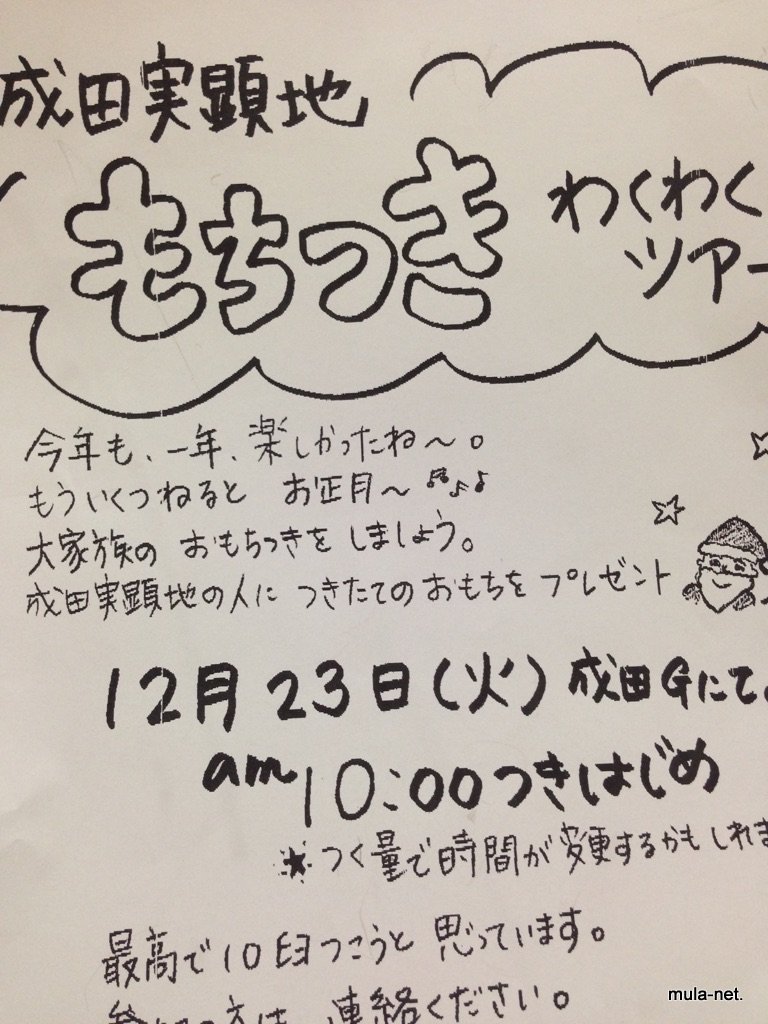 成田実顕地
もちつき
わくわく
ツアー
今年も、一年、楽しかったね〜。
もういくつねると お正月〜
大家族の おもちつきを しましょう。
成田実顕地の人に つきたてのおもちを プレゼント
12月23日(火) 成田Gにて。
am10:00つきはじめ
つく量で時間が変更するかもしれま
最高で10臼つこうと 思っています。
連絡ください。
mula-net.